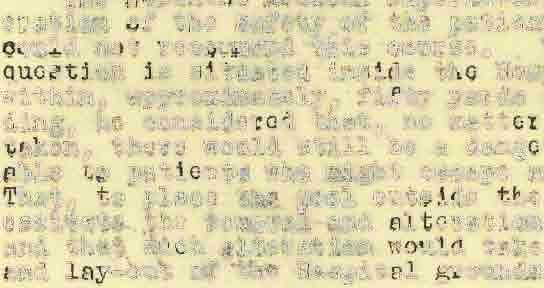 of the safety of the patien
could not recommend this course.
question is situated inside the Hos
within, approximately, fifty yards
ding, he considered that, no matter
taken, there would still be a dange
able to patients who might escape
That, to place the pool outside the
the removal and alteration
and that such alteration would take
and lay-out of the Hospital grounds